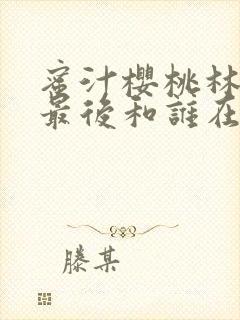 蜜汁櫻桃林
最後和誰在
滕某